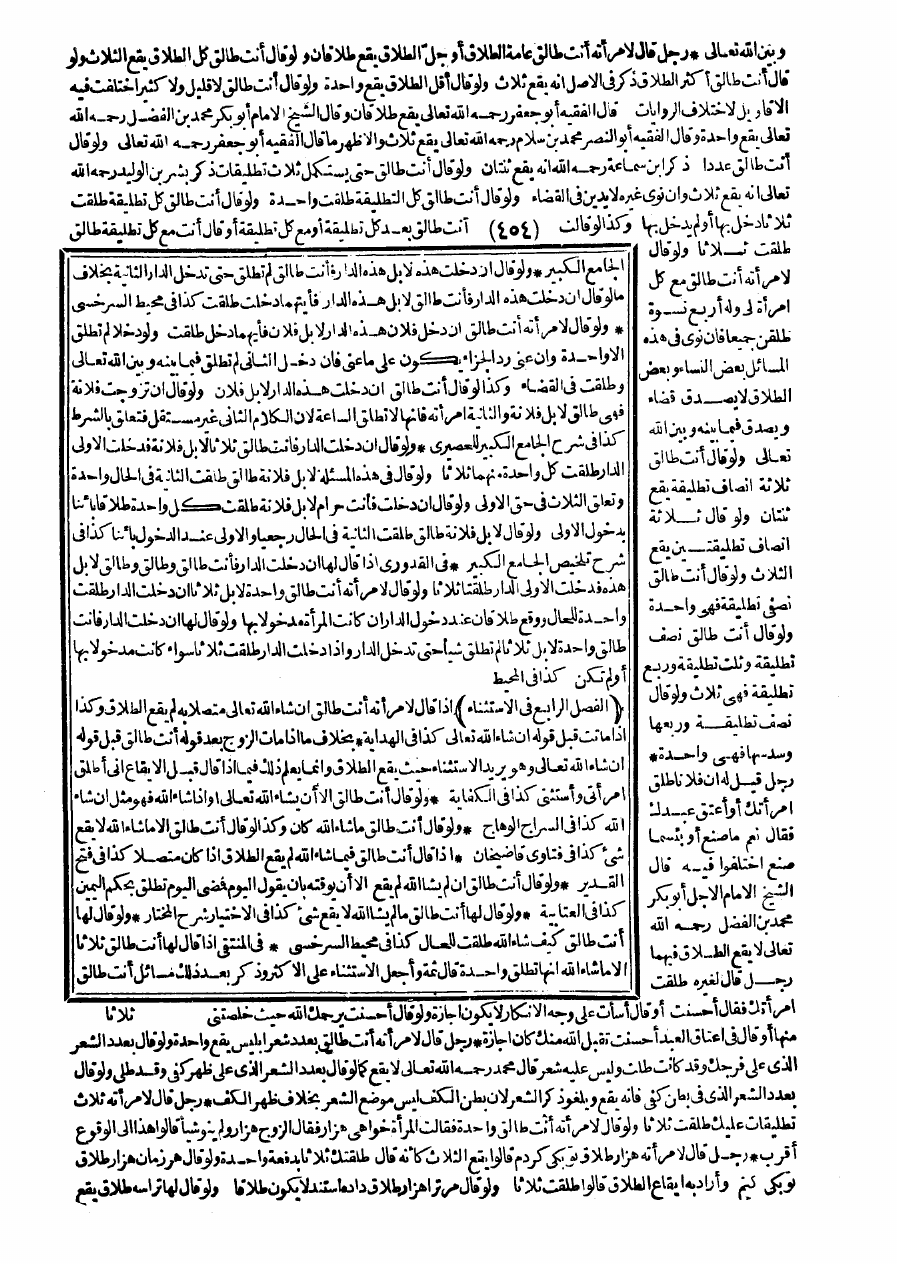 وبين الله تعالى * رجل قال لامرأته أنت طالق عامة الطلاق أو جل الطلاق يقع طلاقان ولو قال أنت طالق كل الطلاق يقع الثلاث ولو
قال أنت طالق أكثر الطلاق ذكر في الاصل انه يقع ثلاث ولو قال أقل الطلاق يقع واحدة ولو قال أنت طالق لا قليل ولا كثير اختلفت فيه
الاقاويل لاختلاف الروايات قال الفقيه أبو جعفر رحمه الله تعالى يقع طلاقان وقال الشيخ الامام أبو بكر محمد بن الفضل رحمه الله
تعالى يقع واحدة وقال الفقيه أبو النصر محمد بن سلام رحمه الله تعالى يقع ثلاث والاظهر ما قال الفقيه أبو جعفر رحمه الله تعالى ولو قال
أنت طالق عددا ذكر ابن سماعة رحمه الله انه يقع ثنتان ولو قال أنت طالق حتى يستكمل ثلاث تطليقات ذكر بشر بن الوليد رحمه الله
تعالى انه يقع ثلاث وان نوى غيره لا يدين في القضاء ولو قال أنت طالق كل التطليقة طلقت واحدة ولو قال أنت طالق كل تطليقة طلقت
ثلاثا دخل بها أو لم يدخل بها وكذا لو قالت (٤٥٤) أنت طالق بعد كل تطليقة أو مع كل تطليقة أو قال أنت مع كل تطليقة طالق
طلقت ثلاثا ولو قال
لامرأته أنت طالق مع كل
امرأة لي وله أربع نسوة
طلقن جميعا فان نوى في هذه
المسائل بعض النساء وبعض
الطلاق لا يصدق قضاء
ويصدق فيما بينه وبين الله
تعالى ولو قال أنت طالق
ثلاثة انصاف تطليقة يقع
ثنتان ولو قال ثلاثة
انصاف تطليقتين يقع
الثلاث ولو قال أنت طالق
نصفي تطليقة فهي واحدة
ولو قال أنت طالق نصف
تطليقة وثلث تطليقة وربع
تطليقة فهي ثلاث ولو قال
نصف تطليقة وربعها
وسدسها فهي واحدة *
رجل قيل له ان فلانا طلق
امرأتك أو أعتق عبدك
فقال نعم ما صنع أو بئسما
صنع اختلفوا فيه قال
الشيخ الامام الاجل أبو بكر
محمد بن الفضل رحمه الله
تعالى لا يقع الطلاق فيهما
رجل قال لغيره طلقت
الجامع الكبير * ولو قال ان دخلت هذه لا بل هذه الدار فأنت طالق لم تطلق حتى تدخل الدار الثانية بخلاف
ما لو قال ان دخلت هذه الدار فأنت طالق لا بل هذه الدار فأيتهما دخلت طلقت كذا في محيط السرخسي
* ولو قال لامرأته أنت طالق ان دخل فلان هذه الدار لا بل فلان فأيهما دخل طلقت ولو دخلا لم تطلق
الا واحدة وان عنى رد الجزاء يكون على ما عنى فان دخل الثاني لم تطلق فيما بينه وبين الله تعالى
وطلقت في القضاء وكذا لو قال أنت طالق ان دخلت هذه الدار لا بل فلان ولو قال ان تزوجت فلانة
فهي طالق لا بل فلانة والثانية امرأته فانها لا تطلق الساعة لان الكلام الثاني غير مستقل فتعلق بالشرط
كذا في شرح الجامع الكبير للحصيري * ولو قال ان دخلت الدار فأنت طالق ثلاثا لا بل فلانة فدخلت الاولى
الدار طلقت كل واحدة منهما ثلاثا ولو قال في هذه المسئلة لا بل فلانة طالق طلقت الثانية في الحال واحدة
وتعلق الثلاث في حق الاولى ولو قال ان دخلت فأنت حرام لا بل فلانة طلقت كل واحدة طلاقا بائنا
بدخول الاولى ولو قال لا بل فلانة طالق طلقت الثانية في الحال رجعيا والاولى عند الدخول بائنا كذا في
شرح تلخيص الجامع الكبير * في القدوري اذا قال لها ان دخلت الدار فأنت طالق وطالق وطالق لا بل
هذه فدخلت الاولى الدار طلقتا ثلاثا ولو قال لامرأته أنت طالق واحدة لا بل ثلاثا ان دخلت الدار طلقت
واحدة للحال ووقع طلاقان عند دخول الدار ان كانت المرأة مدخولا بها ولو قال لها ان دخلت الدار فأنت
طالق واحدة لا بل ثلاثا لم تطلق شيأ حتى تدخل الدار واذا دخلت الدار طلقت ثلاثا سواء كانت مدخولا بها
أو لم تكن كذا في المحيط
﴿الفصل الرابع في الاستثناء﴾ اذا قال لامرأته أنت طالق ان شاء الله تعالى متصلا به لم يقع الطلاق وكذا
اذا ماتت قبل قوله ان شاء الله تعالى كذا في الهداية * بخلاف ما اذا مات الزوج بعد قوله أنت طالق قبل قوله
ان شاء الله تعالى وهو يريد الاستثناء حيث يقع الطلاق وانما يعلم ذلك فيما اذا قال قبل الايقاع اني أطلق
امرأتي وأستثني كذا في الكفاية * ولو قال أنت طالق الا أن يشاء الله تعالى أو اذا شاء الله فهو مثل ان شاء
الله كذا في السراج الوهاج * ولو قال أنت طالق ما شاء الله كان وكذا لو قال أنت طالق الا ما شاء الله لا يقع
شئ كذا في فتاوى قاضيخان * اذا قال أنت طالق فيما شاء الله لم يقع الطلاق اذا كان متصلا كذا في فتح
القدير * ولو قال أنت طالق ان لم يشأ الله لم يقع الا أن يوقته بان يقول اليوم فمضى اليوم تطلق بحكم اليمين
كذا في العتابية * ولو قال لها أنت طالق ما لم يشأ الله لا يقع شئ كذا في الاختيار شرح المختار * ولو قال لها
أنت طالق كيف شاء الله طلقت للحال كذا في محيط السرخسي * في المنتقى اذا قال لها أنت طالق ثلاثا
الا ما شاء الله انها تطلق واحدة قال ثمة وأجعل الاستثناء على الاكثر وذكر بعد ذلك مسائل أنت طالق
ثلاثا
امرأتك فقال أحسنت أو قال أسأت على وجه الانكار لا يكون اجازة ولو قال أحسنت يرحمك الله حيث خلصتني
منها أو قال في اعتاق العبد أحسنت تقبل الله منك كان اجازة * رجل قال لامرأته أنت طالق بعدد شعر ابليس يقع واحدة ولو قال بعدد الشعر
الذي على فرجك وقد كانت طلت وليس عليه شعر قال محمد رحمه الله تعالى لا يقع كما لو قال بعدد الشعر الذي على ظهر كفي وقد طلى ولو قال
بعدد الشعر الذي في بطن كفي فانه يقع ويلغو ذكر الشعر لان بطن الكف ليس موضع الشعر بخلاف ظهر الكف * رجل قال لامرأته ثلاث
تطليقات عليك طلقت ثلاثا ولو قال لامرأته أنت طالق واحدة فقالت المرأة خواهي هزار فقال الزوج هزار ولم ينو شيأ قالوا هذا الى الوقوع
أقرب * رجل قال لامرأته هزار طلاق تو يكي كردم قالوا يقع الثلاث كأنه قال طلقتك ثلاثا بدفعة واحدة ولو قال هر زمان هزار طلاق
تو يكي كنم وأراد به ايقاع الطلاق قالوا طلقت ثلاثا ولو قال مر ترا هزار طلاق داده استند لا يكون طلاقا ولو قال لها تراسه طلاق يقع